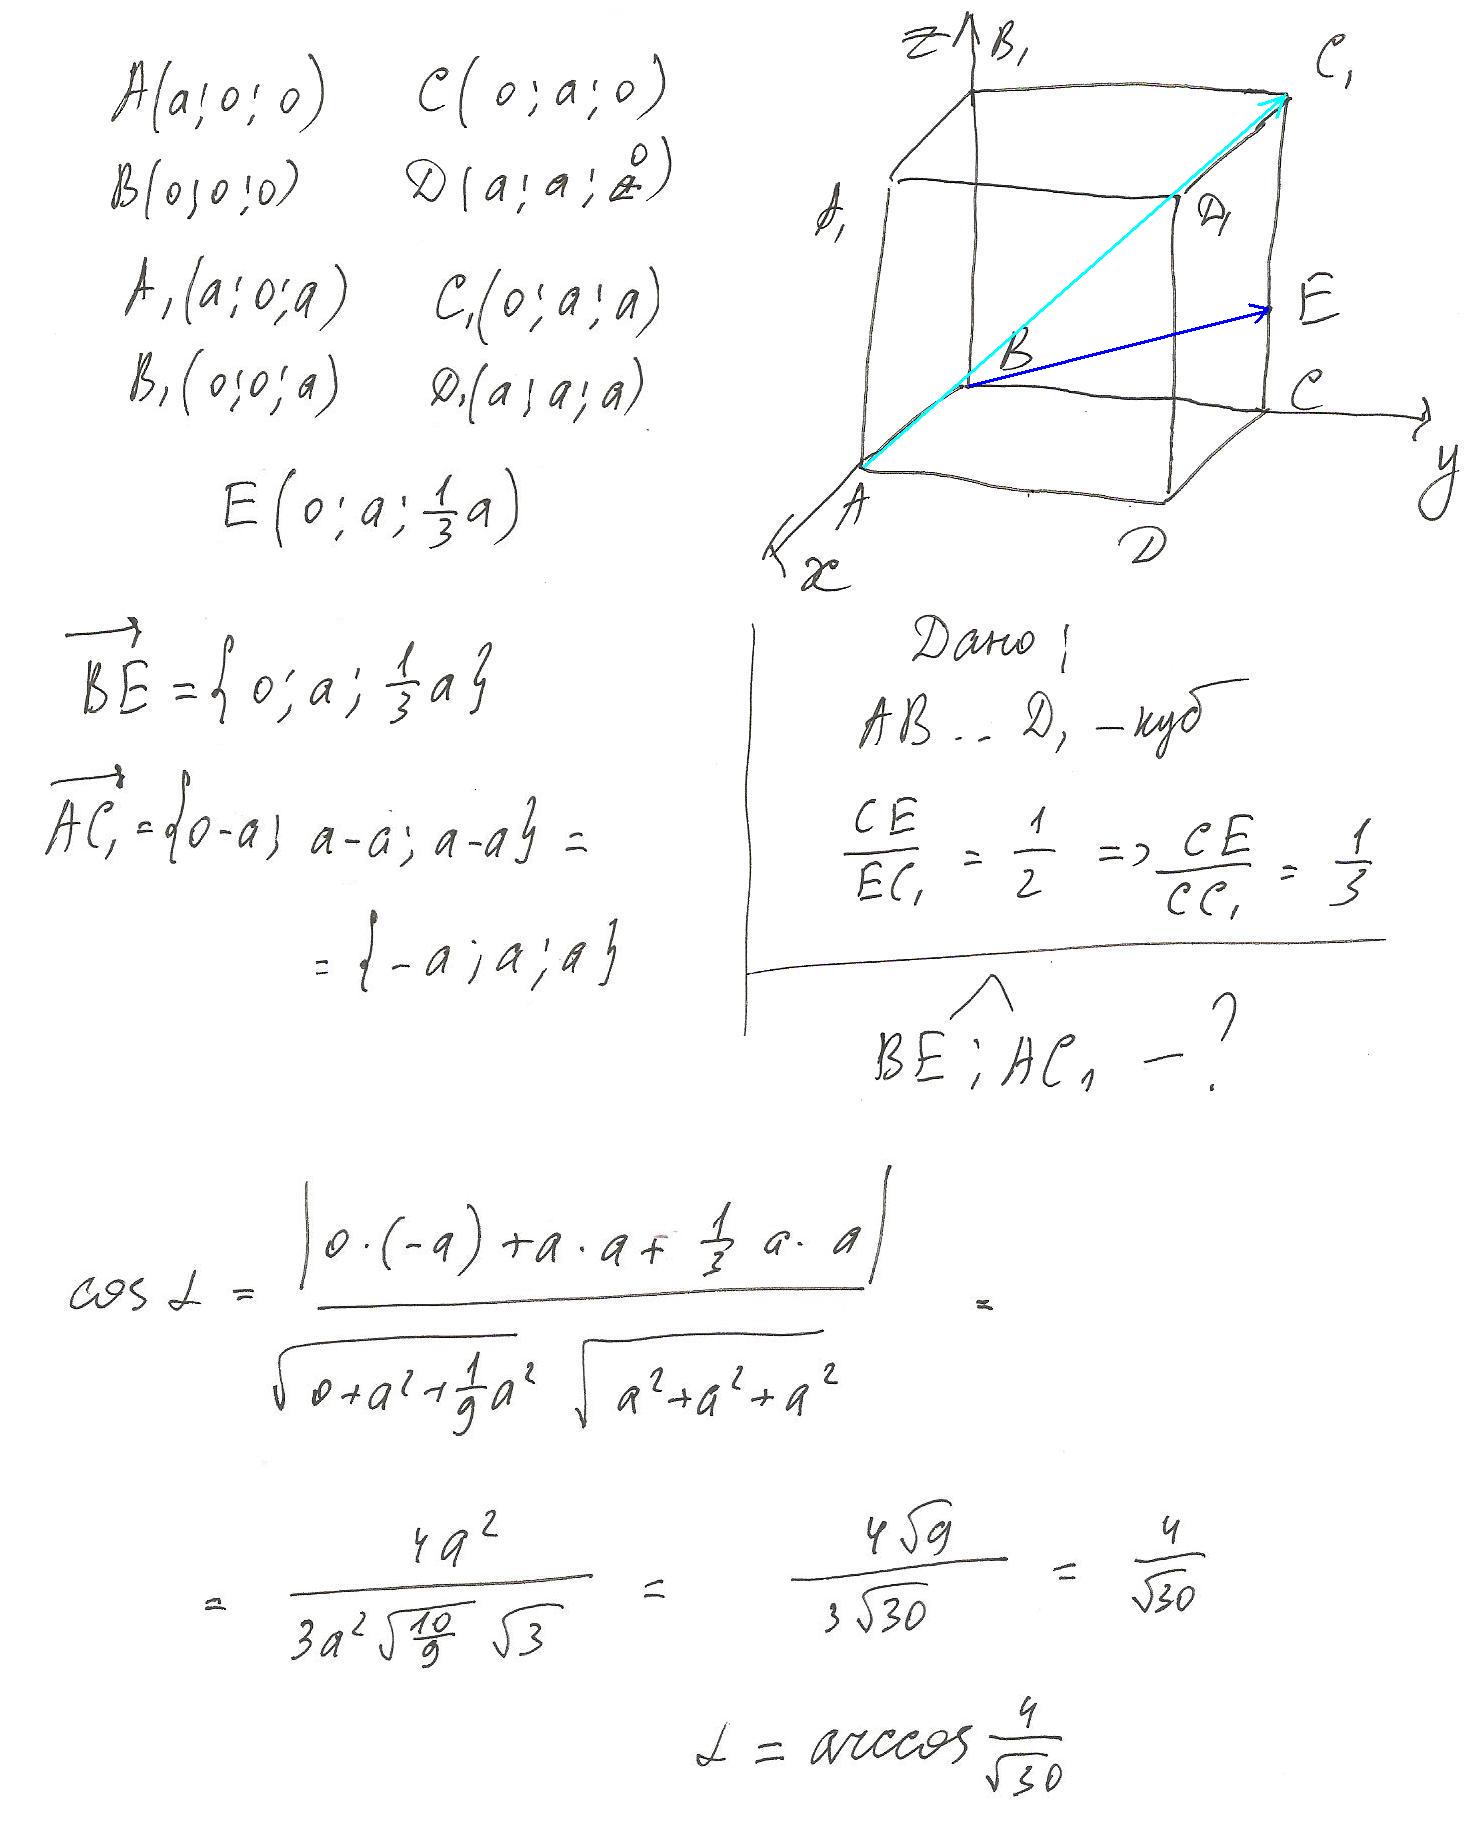 A(a;0;0) C(0;a;0)
B(0;0;0) D(a;a;0)
A₁(a;0;a) C₁(0;a;a)
B₁(0;0;a) D₁(a;a;a)
E(0;a;1/3 a)
z B₁ C₁
A₁ D₁
B E
C
A y
x D
BE = {0;a;1/3 a}
AC₁ = {0-a; a-a; a-a} =
= {-a;a;a}
Дано:
AB .. D₁ – куб
CE/EC₁ = 1/2 => CE/CC₁ = 1/3
BE ; AC₁ – ?
cos α = |0·(-a) + a·a + 1/3 a·a| / √(0+a²+1/9 a²) √(a²+a²+a²) =
= 4a² / 3a²√(10/9) √3 = 4√9 / 3√30 = 4/√30
α = arccos 4/√30